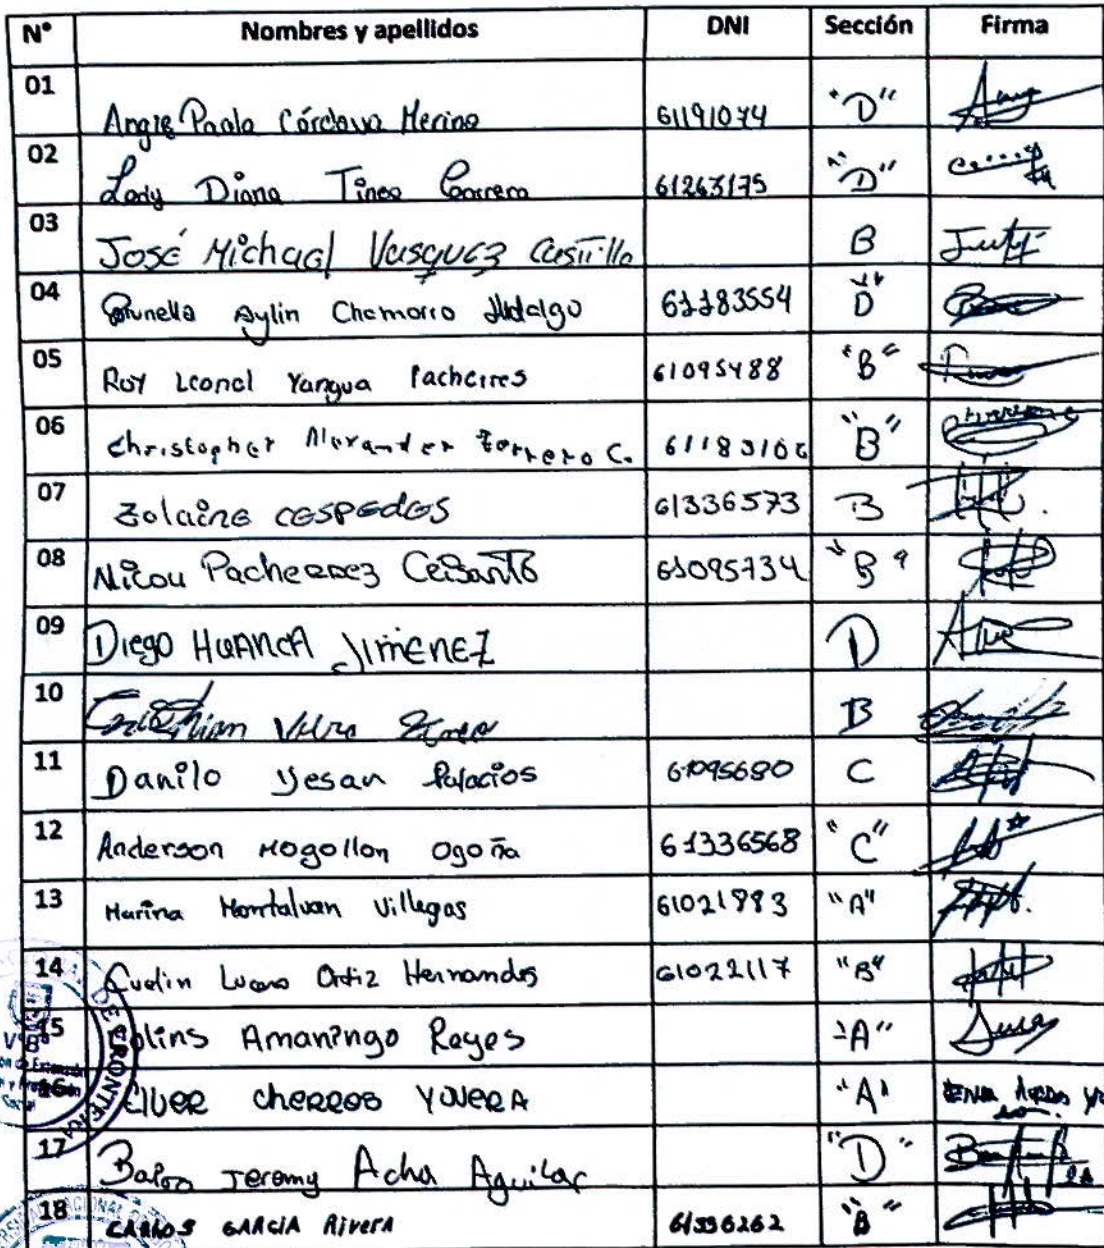 N° Nombres y apellidos DNI Sección Firma
01 Angie Paola Córdova Merino 61191074 "D"
02 Lady Diana Tineo Carrera 61263175 "D"
03 José Michael Vasquez Castillo B
04 Brunella Aylin Chamorro Hidalgo 61183554 "D"
05 Roy Leonel Yangua Pacherres 61095488 "B"
06 Christopher Alexander Ferrero C. 6118310 "B"
07 Zolaine cespedes 61336573 B
08 Nicou 61095734 "B"
09 Diego HUANCA JIMENEZ D
10 B
11 Danilo Yesan Palacios 61095680 C
12 Anderson Mogollon Ogoña 61336568 "C"
13 Marina Montalvan Villegas 61021993 "A"
14 Evelin Ortiz Hernandes 61022117 "B"
15 Amaningo Reyes "A"
16 "A"
17 Jeremy Acha Aguilar "D"
18 CARLOS GARCIA RIVERA 61336262 "B"